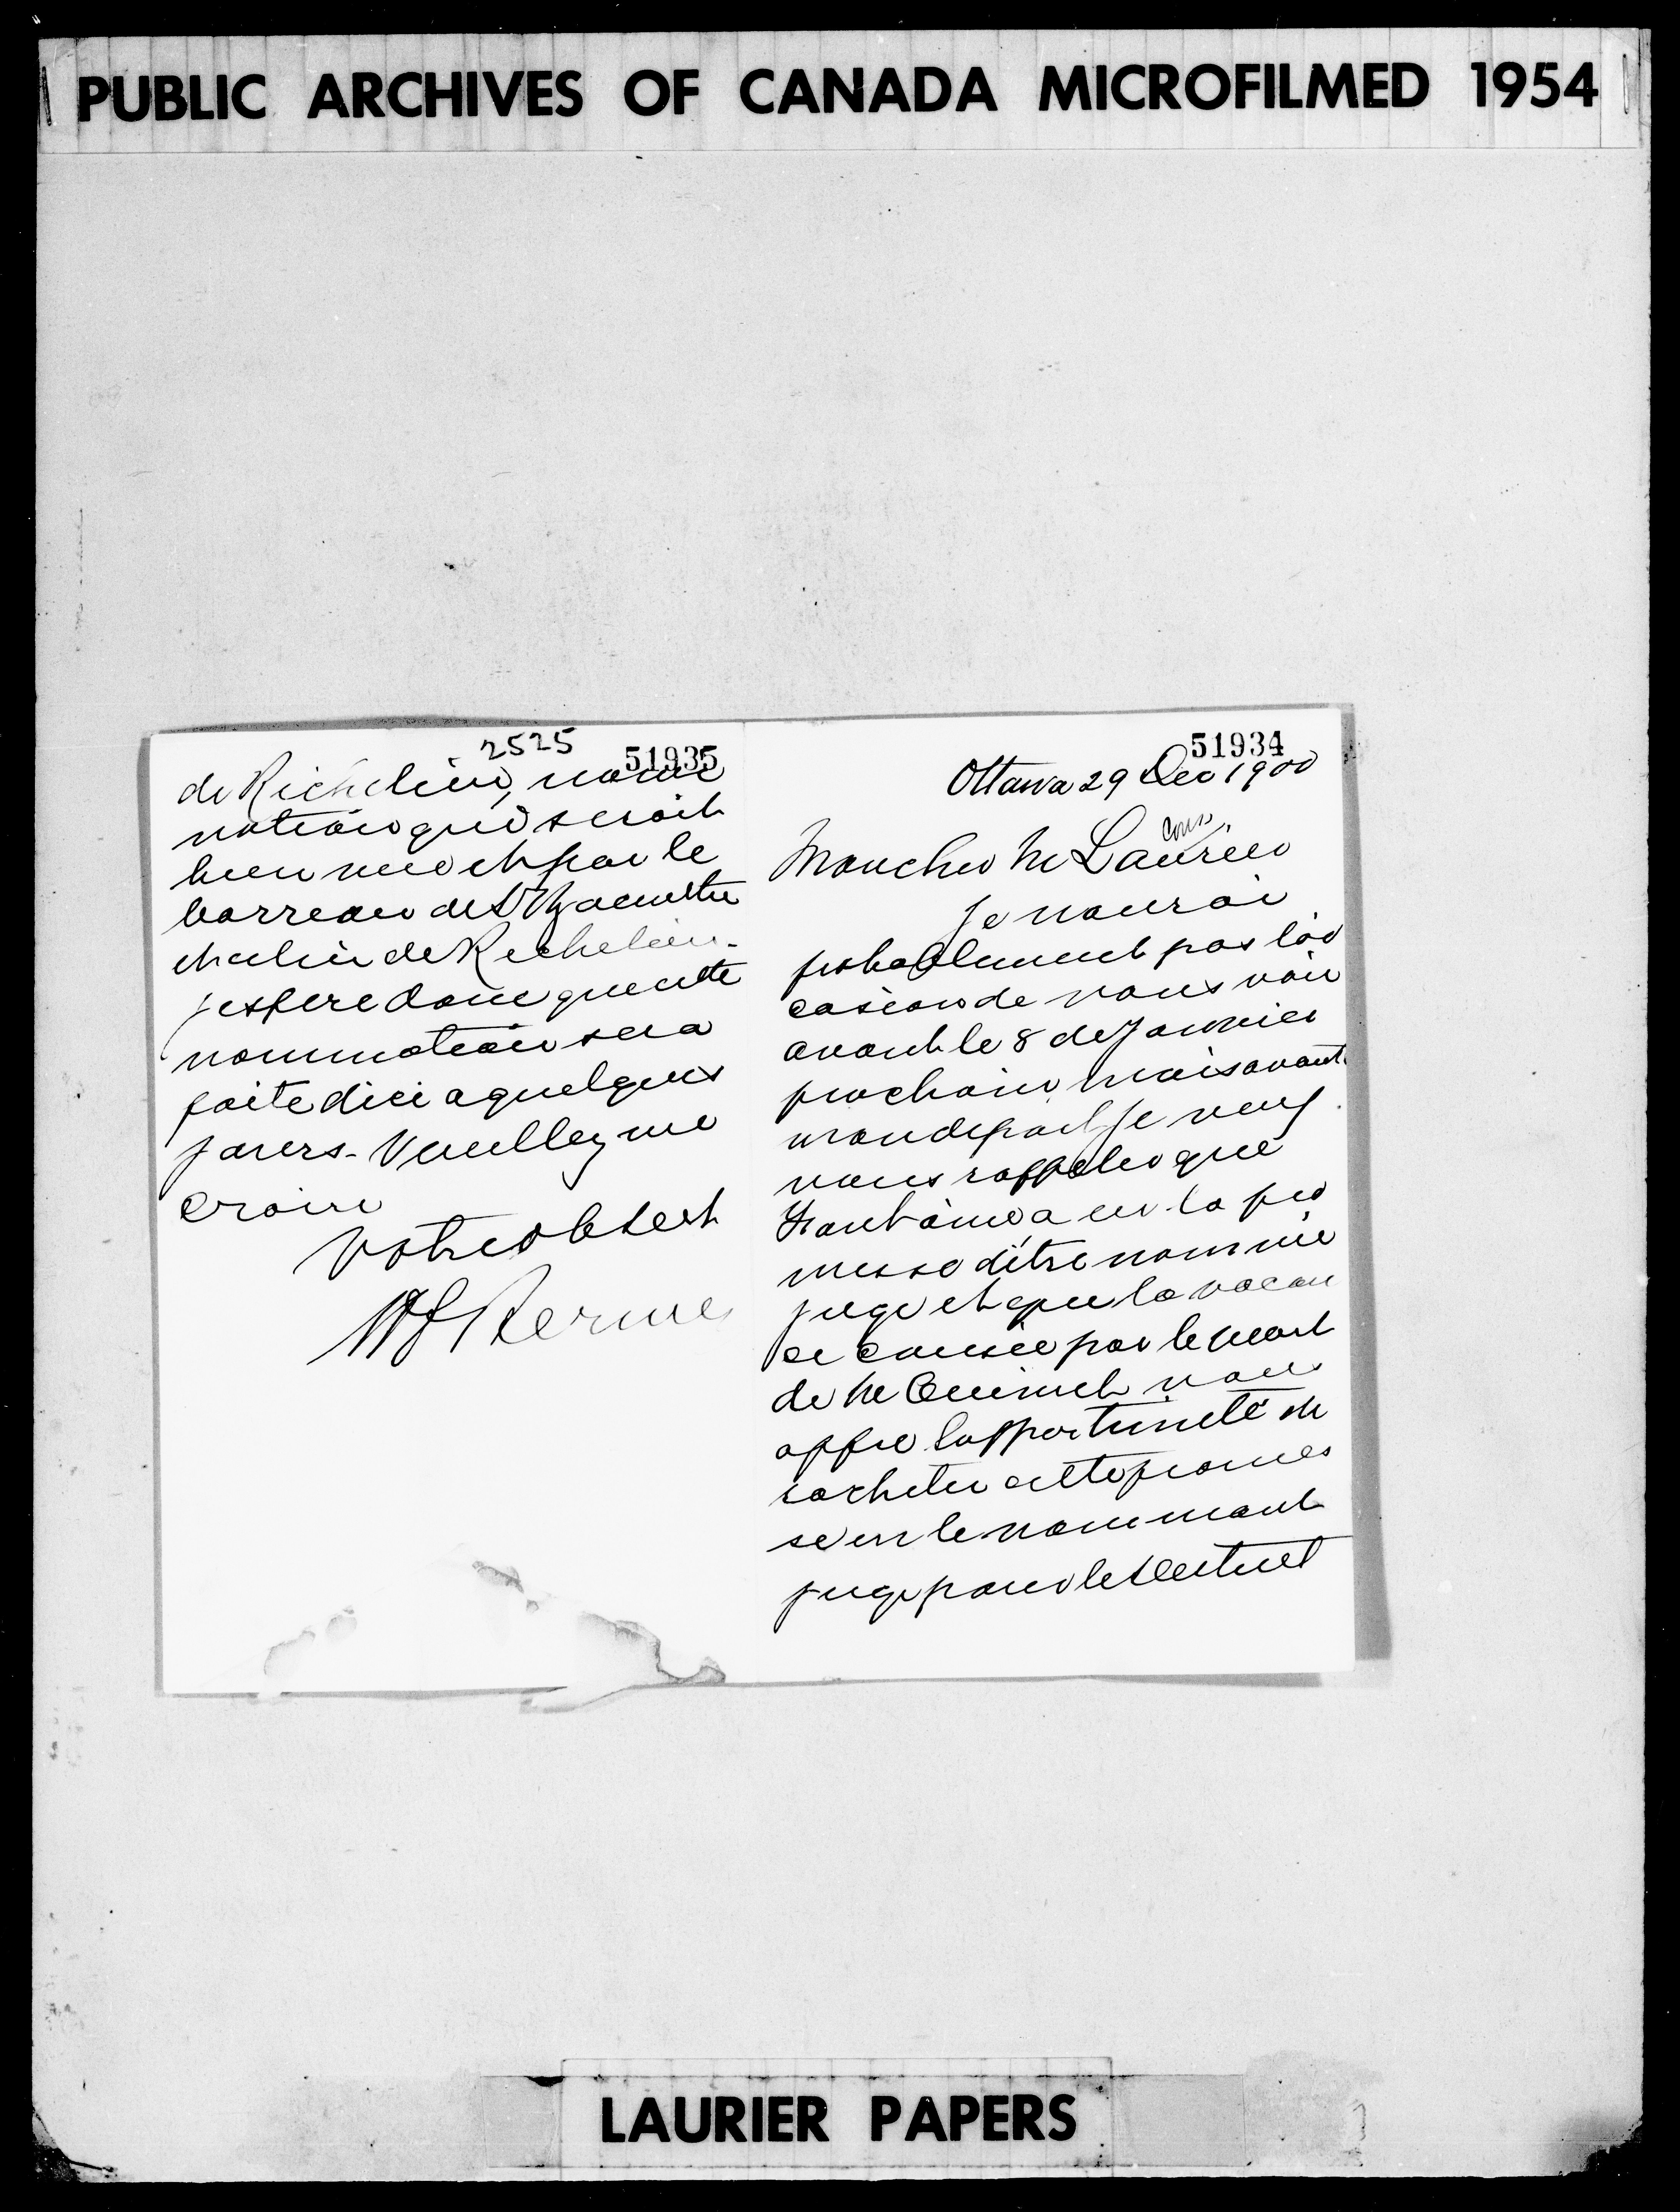 PUBLIC ARCHIVES OF CANADA MICROFILMED 1954
51934
Ottawa 29 Dec 1900
Mon cher M Laurier
Je n'aurai
probablement pas l'oc
casion de vous voir
avant le 8 de Janvier
prochain, mais avant
mon depart je veux
vous rappeler que
Fontaine a eu la pro
messe d'être nommé
juge et que la vacan
ce causée par le mort
de M Ouimet vous
offre l'opportunité de
racheter cette promes
se en le nommant
juge pour le district
2525
51935
de Richelieu, nomi
nation qui serait
bien vue et par le
barreau de St Hyacinthe
et celui de Richelieu.
j'espere donc que cette
nomination sera
faite d'ici a quelques
jours. Veuillez me
croire
Votre ob serv
LAURIER PAPERS